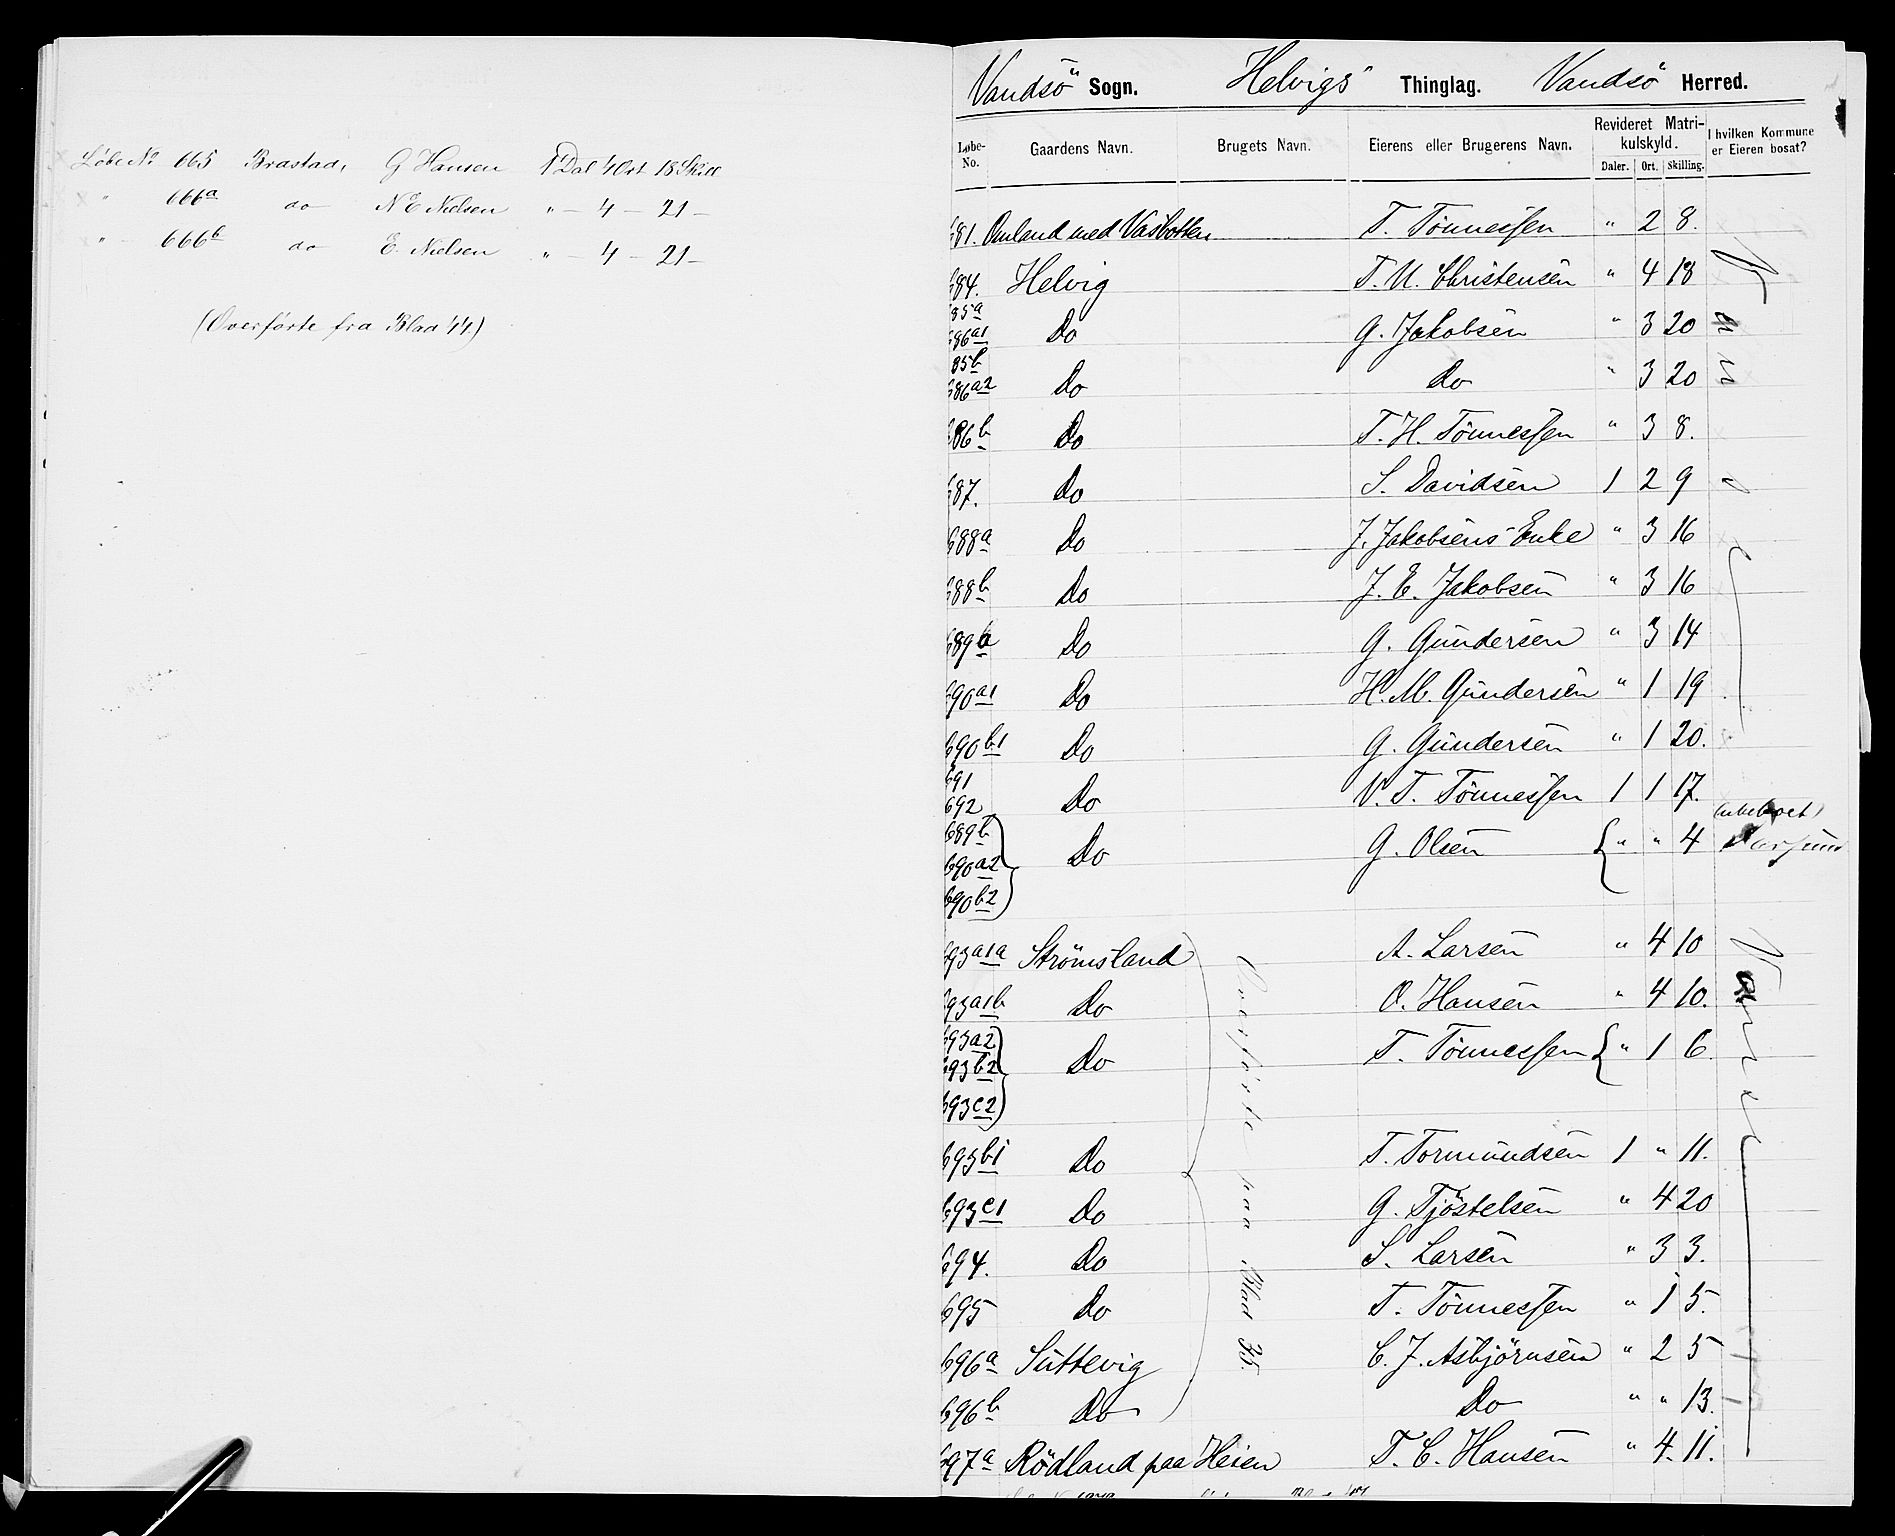 Löbe No 665 Brastad, G Hansen 1 Dal 4 Ort 18 Skill
" 666a do N E Nielsen " - 4 - 21 -
" 666b do E. Nielsen " - 4 - 21 -
(Overførte fra Blad 44)
Vandsö Sogn. Helvigs Thinglag. Vandsö Herred.
Løbe-No. Gaardens Navn. Brugets Navn. Eierens eller Brugerens Navn. Revideret Matrikulskyld. Daler. Ort. Skilling. I hvilken Kommune er Eieren bosat?
681. Omland med Vasbotten T. Tönnessen " 2 8.
684. Helvig T. U. Christensen " 4 18
685a 686a1 Do G. Jakobsen " 3 20
685b 686a2 Do Do " 3 20
686b Do T. H. Tönnessen " 3 8.
687. Do S. Davidsen 1 2 9
688a Do J. Jakobsens Enke " 3 16
688b Do J. E. Jakobsen " 3 16
689a Do G. Gundersen " 3 14
690a1 Do H. M. Gundersen " 1 19
690b1 Do G. Gundersen " 1 20.
691 692 Do V. T. Tönnessen 1 1 17.
689b 690a2 690b2 Do G. Olsen " " 4 (ubeboet)
693a1a Strömsland A. Larsen " 4 10
693a1b Do O. Hansen " 4 10.
693a2 693b2 693c2 Do T. Tönnessen " 1 6.
693b1 Do T. Tormundsen 1 " 11.
693c1 Do G. Tjöstelsen " 4 20
694. Do S. Larsen " 3 3.
695 Do T. Tönnessen " 1 5.
696a Süttevig C. J. Asbjörnsen " 2 5
696b Do Do " " 13.
697a Rödland paa Heien T. C. Hansen " 4. 11.
Overførte paa Blad 35.
Vanse